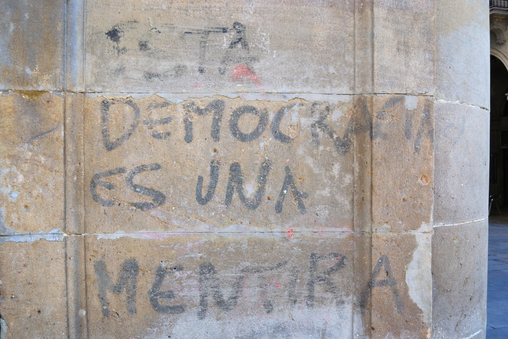 ESTA
DEMOCRACIA
ES UNA
MENTIRA